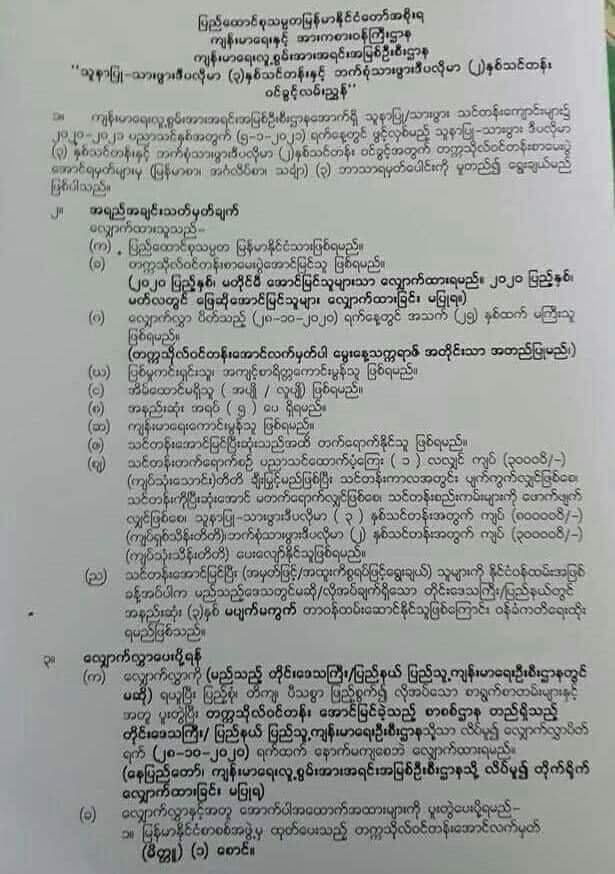 ပြည်ထောင်စုသမ္မတမြန်မာနိုင်ငံတော်အစိုးရ
ကျန်းမာရေးနှင့် အားကစားဝန်ကြီးဌာန
ကျန်းမာရေးလူ့စွမ်းအားအရင်းအမြစ်ဦးစီးဌာန
"သူနာပြု-သားဖွားဒီပလိုမာ (၃)နှစ်သင်တန်းနှင့် ဘက်စုံသားဖွားဒီပလိုမာ (၂)နှစ်သင်တန်း
ဝင်ခွင့်လမ်းညွှန်"
၁။ ကျန်းမာရေးလူ့စွမ်းအားအရင်းအမြစ်ဦးစီးဌာနအောက်ရှိ သူနာပြု/သားဖွား သင်တန်းကျောင်းများ၌
၂၀၂၀-၂၀၂၁ ပညာသင်နှစ်အတွက် (၅-၁-၂၀၂၁) ရက်နေ့တွင် ဖွင့်လှစ်မည့် သူနာပြု-သားဖွား ဒီပလိုမာ
(၃) နှစ်သင်တန်းနှင့် ဘက်စုံသားဖွားဒီပလိုမာ (၂)နှစ်သင်တန်း ဝင်ခွင့်အတွက် တက္ကသိုလ်ဝင်တန်းစာမေးပွဲ
အောင်ရမှတ်များမှ (မြန်မာစာ၊ အင်္ဂလိပ်စာ၊ သင်္ချာ) (၃) ဘာသာရမှတ်ပေါင်းကို မူတည်၍ ရွေးချယ်မည်
ဖြစ်ပါသည်။
၂။ အရည်အချင်းသတ်မှတ်ချက်
လျှောက်ထားသူသည်-
(က) ပြည်ထောင်စုသမ္မတ မြန်မာနိုင်ငံသားဖြစ်ရမည်။
(ခ) တက္ကသိုလ်ဝင်တန်းစာမေးပွဲအောင်မြင်သူ ဖြစ်ရမည်။
(၂၀၂၀ ပြည့်နှစ်၊ မတိုင်မီ အောင်မြင်သူများသာ လျှောက်ထားရမည်။ ၂၀၂၀ ပြည့်နှစ်၊
မတ်လတွင် ဖြေဆိုအောင်မြင်သူများ လျှောက်ထားခြင်း မပြုရ။)
(ဂ) လျှောက်လွှာ ပိတ်သည့် (၂၈-၁၀-၂၀၂၀) ရက်နေ့တွင် အသက် (၂၅) နှစ်ထက် မကြီးသူ
ဖြစ်ရမည်။
(တက္ကသိုလ်ဝင်တန်းအောင်လက်မှတ်ပါ မွေးနေ့သက္ကရာဇ် အတိုင်းသာ အတည်ပြုမည်၊)
(ဃ) ပြစ်မှုကင်းရှင်းသူ၊ အကျင့်စာရိတ္တကောင်းမွန်သူ ဖြစ်ရမည်။
(င) အိမ်ထောင်မရှိသူ ( အပျို / လူပျို) ဖြစ်ရမည်။
(စ) အနည်းဆုံး အရပ် ( ၅ ) ပေ ရှိရမည်။
(ဆ) ကျန်းမာရေးကောင်းမွန်သူ ဖြစ်ရမည်။
(ဇ) သင်တန်းအောင်မြင်ပြီးဆုံးသည်အထိ တက်ရောက်နိုင်သူ ဖြစ်ရမည်။
(ဈ) သင်တန်းတက်ရောက်စဉ် ပညာသင်ထောက်ပံ့ကြေး ( ၁ ) လလျှင် ကျပ် (၃၀၀၀ဝိ/-)
(ကျပ်သုံးသောင်း)တိတိ ချီးမြှင့်မည်ဖြစ်ပြီး သင်တန်းကာလအတွင်း ပျက်ကွက်လျှင်ဖြစ်စေ၊
သင်တန်းကိုပြီးဆုံးအောင် မတက်ရောက်လျှင်ဖြစ်စေ၊ သင်တန်းစည်းကမ်းများကို ဖောက်ဖျက်
လျှင်ဖြစ်စေ၊ သူနာပြု-သားဖွားဒီပလိုမာ ( ၃ ) နှစ်သင်တန်းအတွက် ကျပ် (၈၀၀၀၀ဝိ/-)
(ကျပ်ရှစ်သိန်းတိတိ)၊ဘက်စုံသားဖွားဒီပလိုမာ (၂) နှစ်သင်တန်းအတွက် ကျပ် (၃၀၀၀၀ဝိ/-)
(ကျပ်သုံးသိန်းတိတိ) ပေးလျော်နိုင်သူဖြစ်ရမည်။
(ည) သင်တန်းအောင်မြင်ပြီး (အမှတ်ဖြင့်/အထူးကိစ္စရပ်ဖြင့်ရွေးချယ်) သူများကို နိုင်ငံ့ဝန်ထမ်းအဖြစ်
ခန့်အပ်ပါက မည်သည့်ဒေသတွင်မဆို/လိုအပ်ချက်ရှိသော တိုင်းဒေသကြီး/ပြည်နယ်တွင်
အနည်းဆုံး (၃)နှစ် မပျက်မကွက် တာဝန်ထမ်းဆောင်နိုင်သူဖြစ်ကြောင်း ဝန်ခံကတိရေးထိုး
ရမည်ဖြစ်သည်။
၃။ လျှောက်လွှာပေးပို့ရန်
(က) လျှောက်လွှာကို (မည်သည့် တိုင်းဒေသကြီး/ပြည်နယ် ပြည်သူ့ကျန်းမာရေးဦးစီးဌာနတွင်
မဆို) ရယူပြီး ပြည့်စုံ၊ တိကျ၊ ပီသစွာ ဖြည့်စွက်၍ လိုအပ်သော စာရွက်စာတမ်းများနှင့်
အတူ ပူးတွဲပြီး တက္ကသိုလ်ဝင်တန်း အောင်မြင်ခဲ့သည့် စာစစ်ဌာန တည်ရှိသည့်
တိုင်းဒေသကြီး/ ပြည်နယ် ပြည်သူ့ကျန်းမာရေးဦးစီးဌာနသို့သာ လိပ်မူ၍ လျှောက်လွှာပိတ်
ရက် (၂၈-၁၀-၂၀၂၀) ရက်ထက် နောက်မကျစေဘဲ လျှောက်ထားရမည်။
(နေပြည်တော်၊ ကျန်းမာရေးလူ့စွမ်းအားအရင်းအမြစ်ဦးစီးဌာနသို့ လိပ်မူ၍ တိုက်ရိုက်
လျှောက်ထားခြင်း မပြုရ)
(ခ) လျှောက်လွှာနှင့်အတူ အောက်ပါအထောက်အထားများကို ပူးတွဲပေးပို့ရမည်-
၁။ မြန်မာနိုင်ငံစာစစ်အဖွဲ့မှ ထုတ်ပေးသည့် တက္ကသိုလ်ဝင်တန်းအောင်လက်မှတ်
(မိတ္တူ) (၁) စောင်။